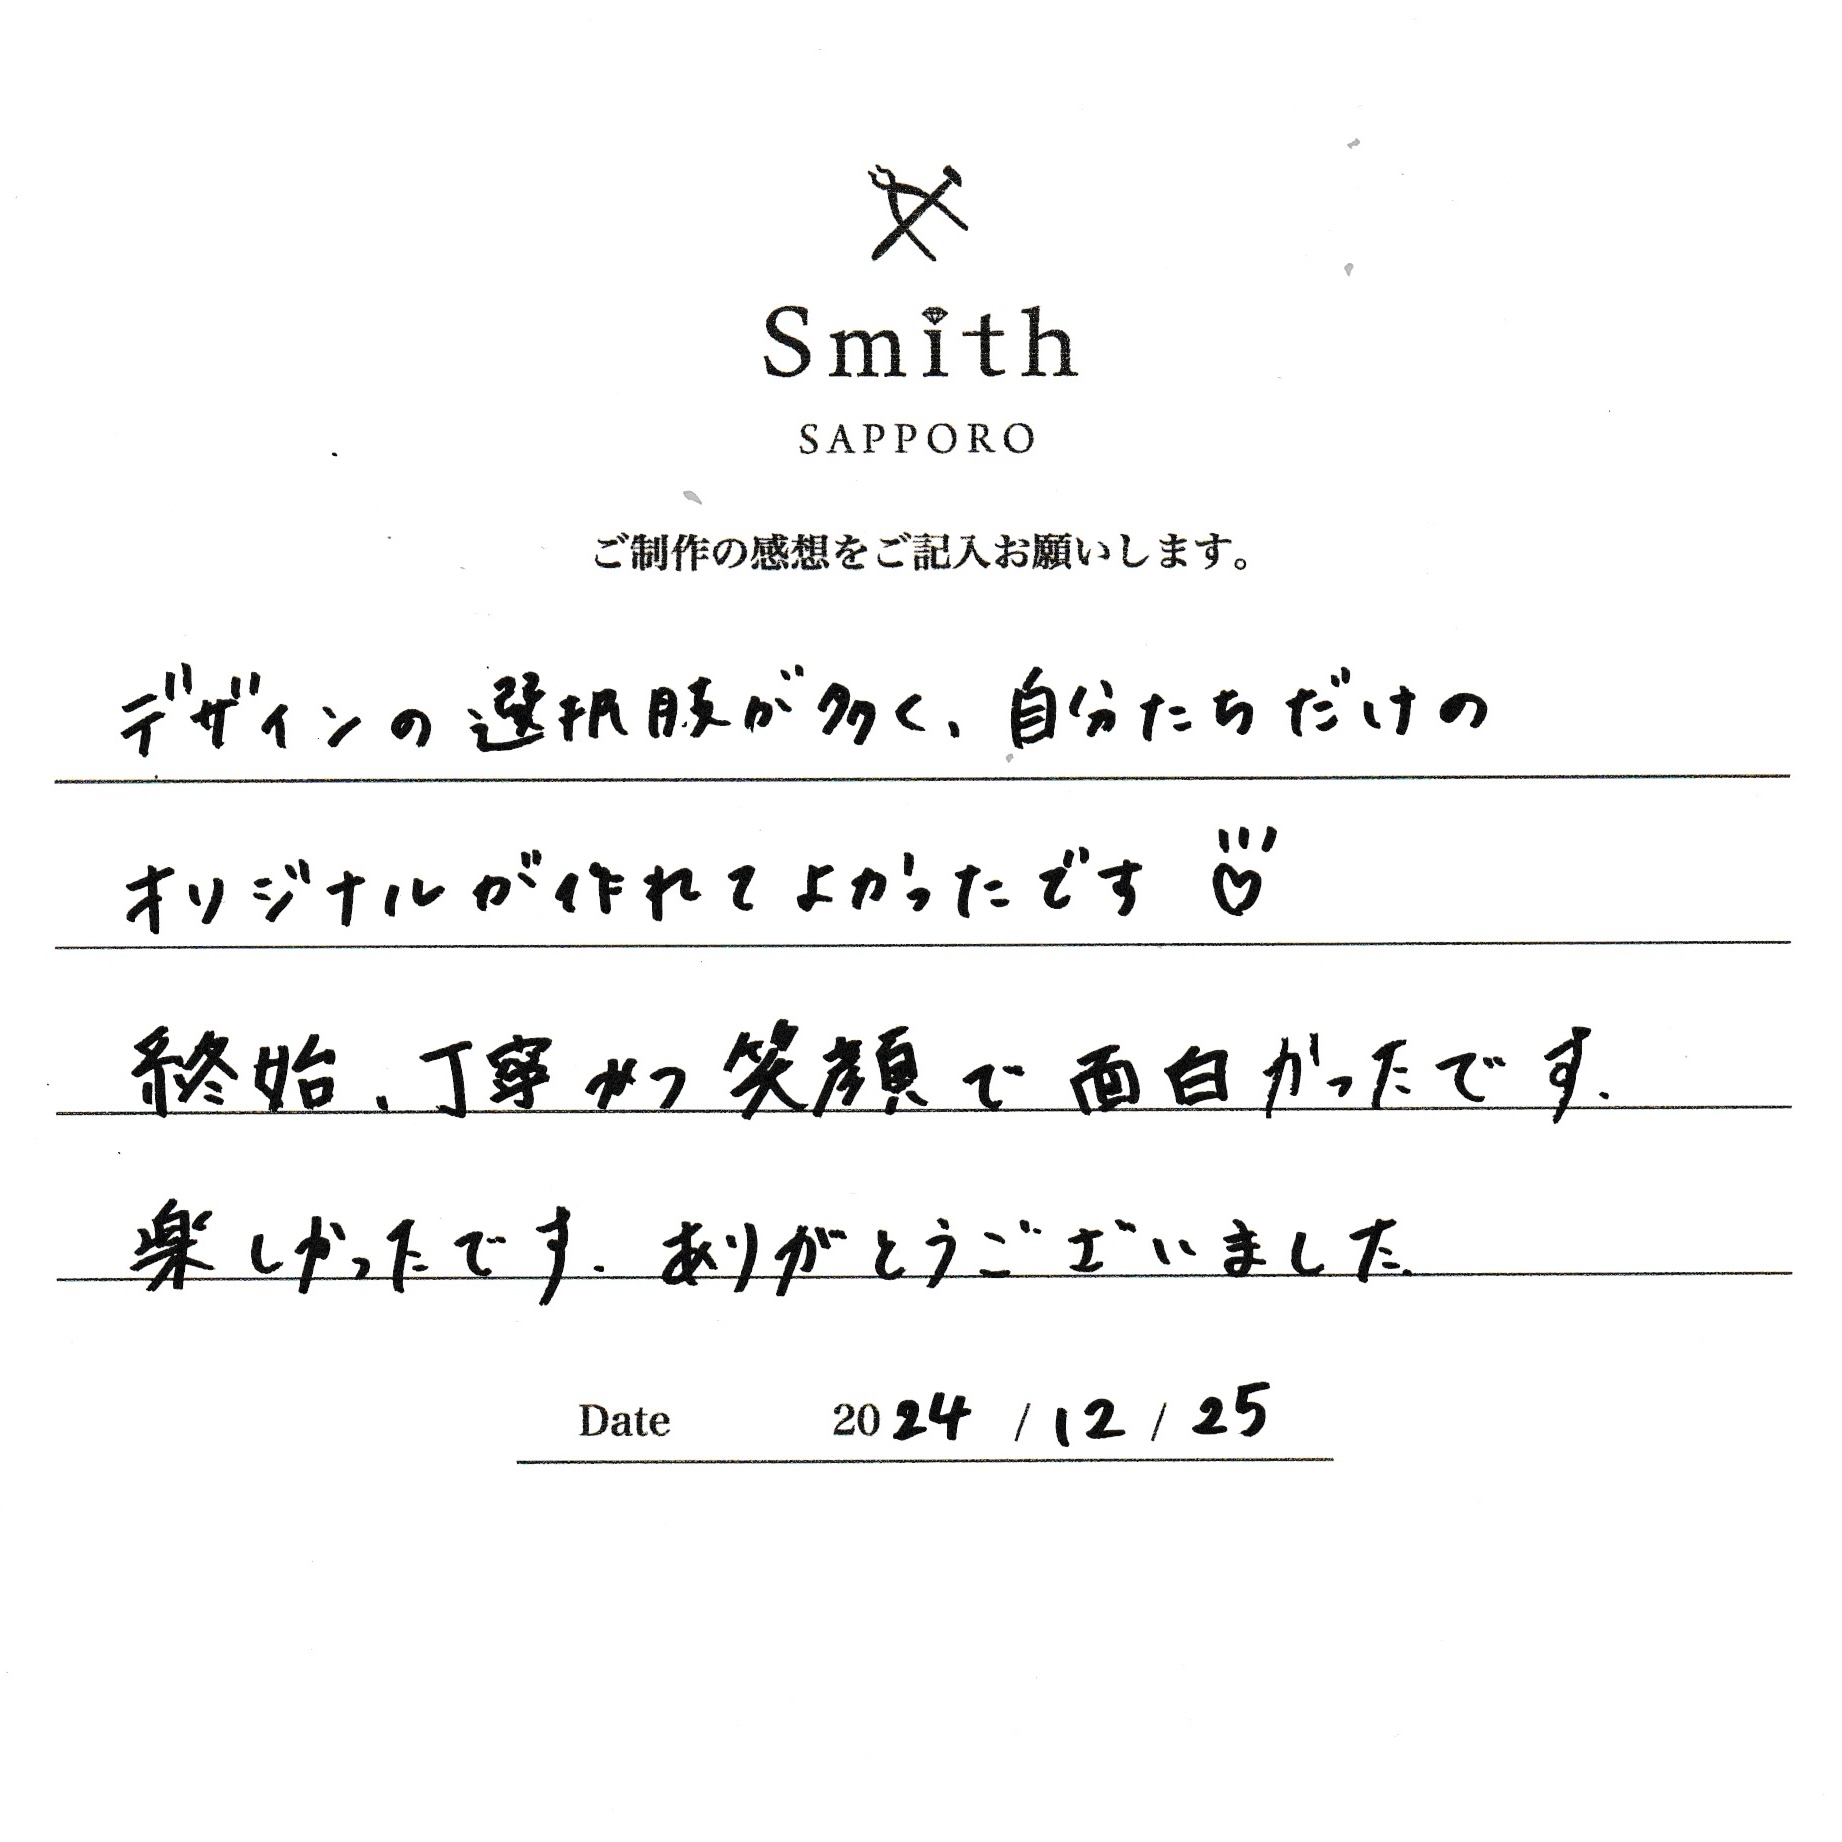 Smith
SAPPORO
ご制作の感想をご記入お願いします。
デザインの選択肢が多く、自分たちだけの
オリジナルが作れてよかったです
終始、丁寧かつ笑顔で面白かったです.
楽しかったです. ありがとうございました.
Date 2024 / 12 / 25